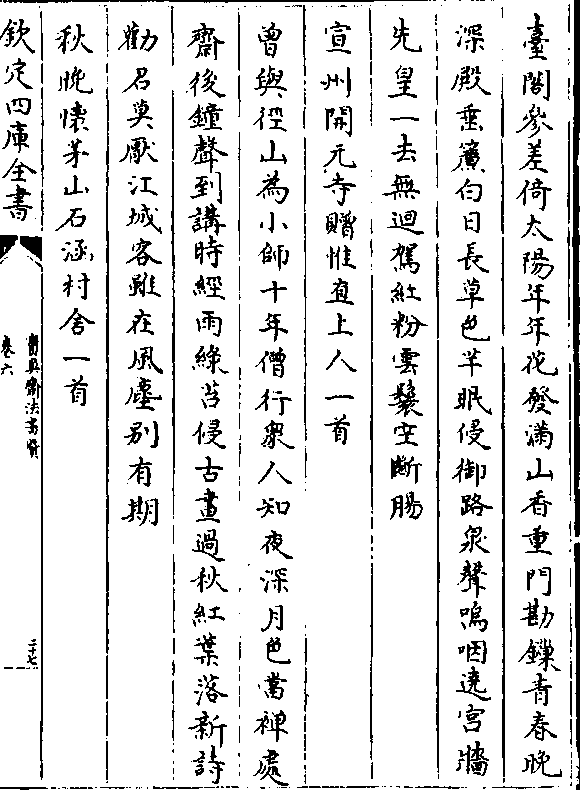 臺閣參差倚太陽年年花發滿山香重門勘鏁青春晚
深殿垂簾白日長草色芊眠侵御路泉聲嗚咽遶宮牆
先皇一去無迴駕紅粉雲鬟空斷腸
宣州開元寺贈惟直上人一首
曾與徑山為小師十年僧行衆人知夜深月色當禪處
齋後鐘聲到講時經雨綠苔侵古畫過秋紅葉落新詩
勸君莫厭江城客雖在風塵别有期
秋晚懷茅山石涵村舍一首
欽定四庫全書
寶真齋法書贊
卷六
二十七